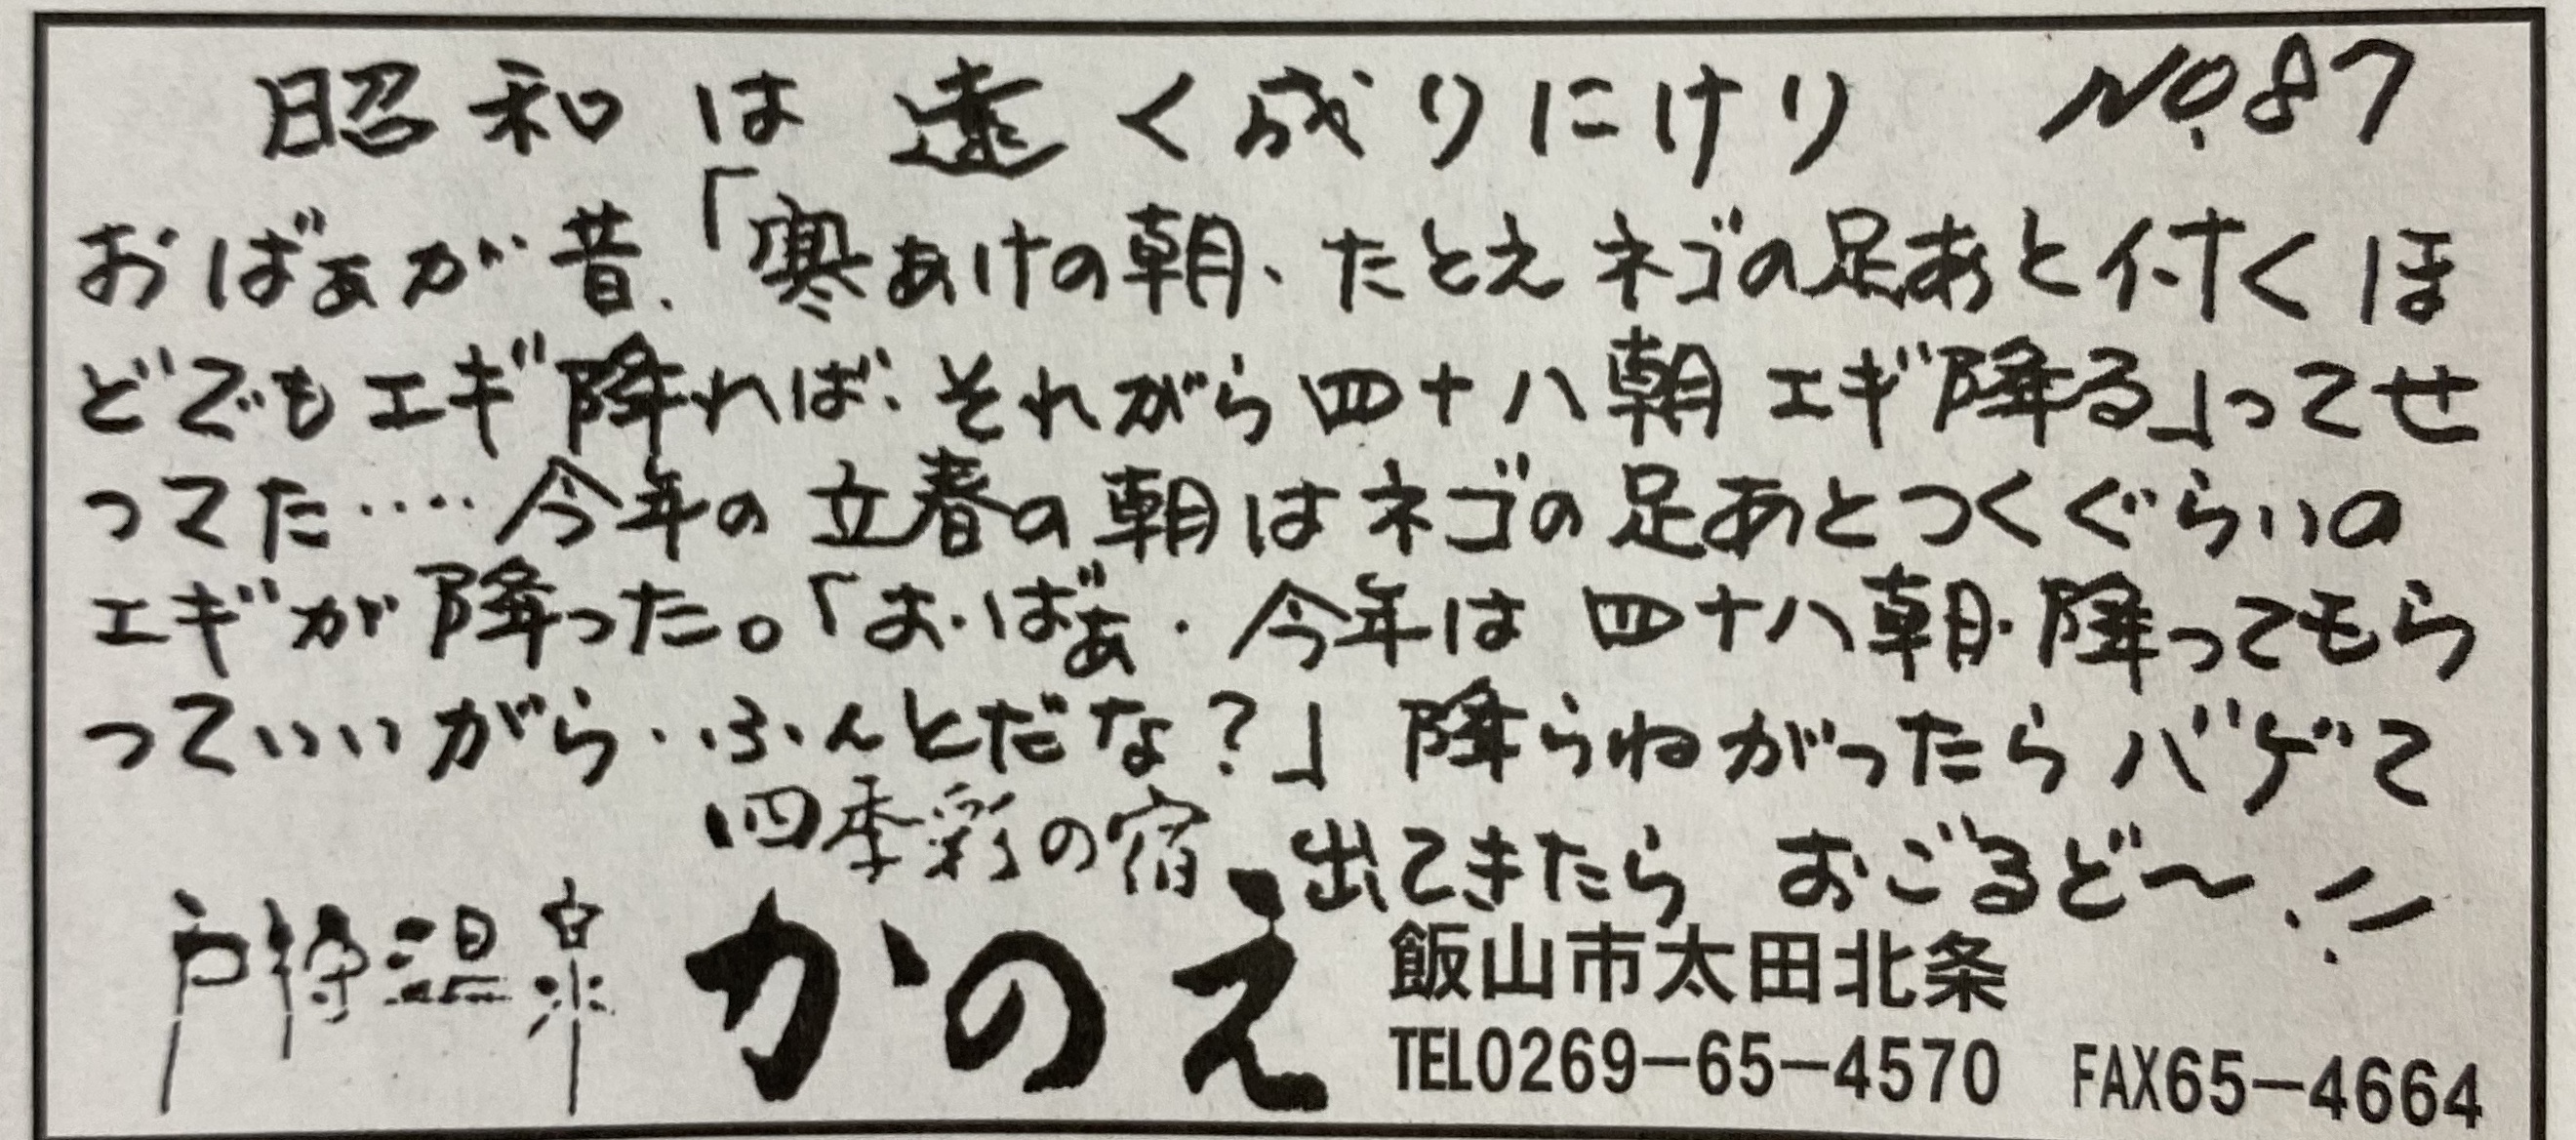 昭和は遠く成りにけり NO.87
おばぁが昔、「寒あけの朝、たとえネゴの足あと付くほ
どでもエギ降れば、それがら四十八朝エギ降る」ってせ
ってた‥‥今年の立春の朝はネゴの足あとつくぐらいの
エギが降った。「おばぁ、今年は四十八朝降ってもら
っていいがら‥ふんとだな?」降らねがったらバゲて
出てきたら おごるど〜!!
四季彩の宿
戸狩温泉 かのえ
飯山市太田北条
TEL0269-65-4570 FAX65-4664